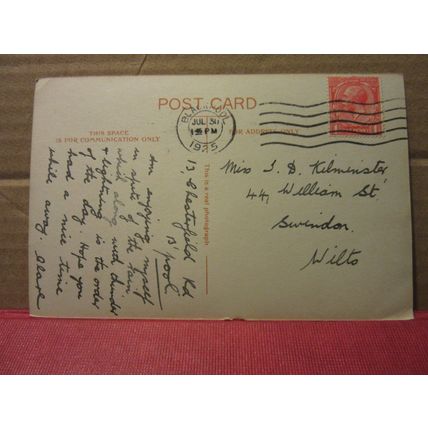 POST CARD
THIS SPACE
IS FOR COMMUNICATION ONLY
FOR ADDRESS ONLY
This is a real photograph
BLACKPOOL
JUL 30
PM
1925
13, Chesterfield Rd
B'pool
Am enjoying myself
in spite of the rain
which along with thunder
& lightning is the order
of the day. Hope you
had a nice time
while away.
Miss I. D. Kilminster
44, William St
Swindon
Wilts